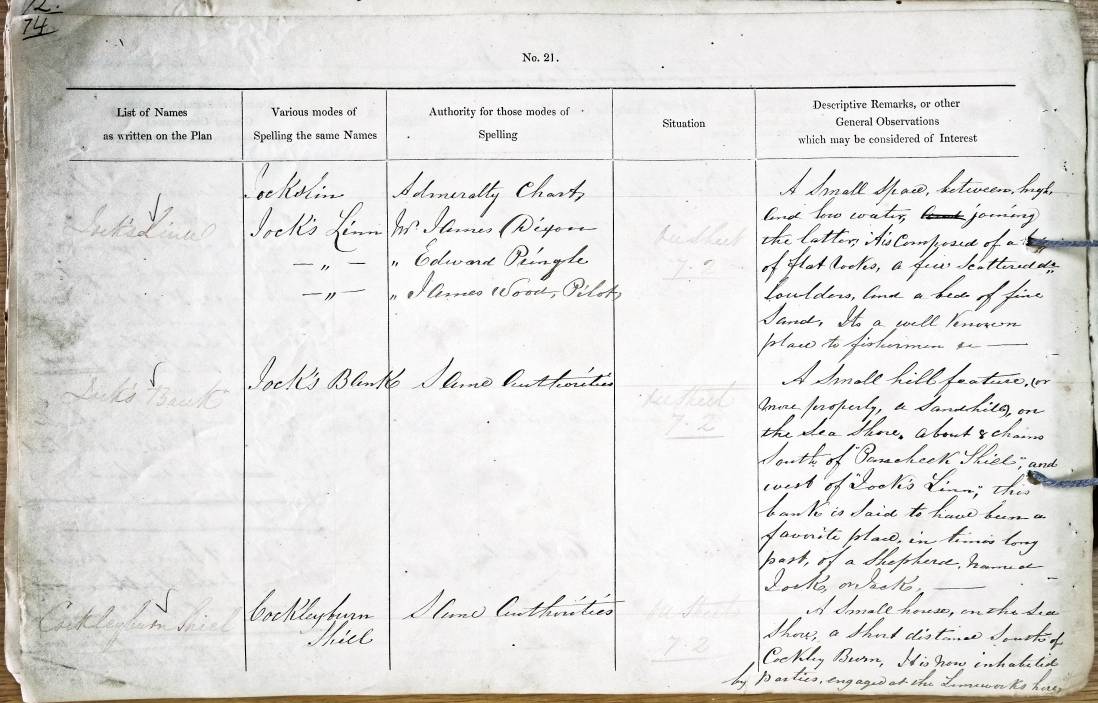 12.
74
No. 21.
List of Names
as written on the Plan
Various modes of
Spelling the same Names
Authority for those modes of
Spelling
Situation
Descriptive Remarks, or other
General Observations
which may be considered of Interest
Jock's Linn
Jockslin
Jock's Linn
— „ —
— „ —
Admeralty Chart,
Mr James Dixon
„ Edward Pringle
„ James Wood, Pilot,
On Sheet
7. 2
A Small Space, between, high,
and low water, joining
the latter, it is Composed of a
of flat Rocks, a few Scattered
boulders, and a bed of fine
Sand. Its a well Known
place to fishermen &c —
Jock's Bank
Jock's Bank
Same Authorities
On Sheet
7. 2
A Small hill feature, (or
more properly, a Sandhill), on
the Sea Shore, about 8 chains
South of "Shiel", and
west of "Jock's Linn", this
bank is Said to have been a
favorite place, in times long
past, of a Shepherd, Named
Jock, or Jack, —
Cockleyburn Shiel
Cockleyburn
Shiell
Same Authorities
On Sheet
7. 2
A Small house, on the Sea
Shore, a Short distance South of
Cockley Burn, It is now inhabited
by parties, engaged at the Limeworks here,